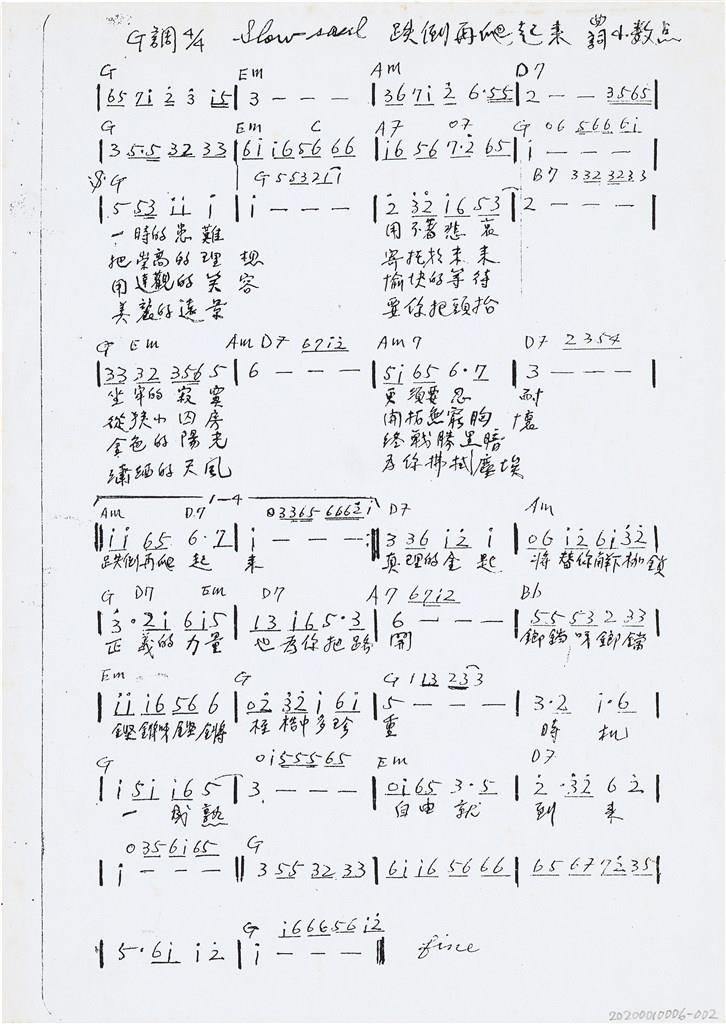 G調 4/4 Slow-soul 跌倒再爬起来 詞 小数点
G Em Am D7
65 71 2 3 15 3 - - - 367 1 2 6·55 2 - - 3565
G Em C A7 D7 G 06 5666i
3 5·5 32 33 6i i6 56 66 i6 56 7·2 65 i - - -
G G 553211 B7 332 3233
5 53 ii i i - - - 2 32 i6 53 2 - - -
一時的患難 用不著悲哀
把崇高的理想 寄托於未来
用達觀的笑容 愉快的等待
美麗的遠景 要你把頭抬
G Em Am D7 67i2 Am7 D7 2354
33 32 356 5 6 - - - 5i 65 6·7 3 - - -
坐牢的寂寞 更須要忍耐
從狹小囚房 開拓無窮胸懷
金色的陽光 終戰勝黑暗
的天風 為你拂拭塵埃
1-4
Am D7 03365 6662i D7 Am
ii 65 6·7 i - - - 3 36 i2 i 06 i2 6i 32
跌倒再爬起来 真理的金 將替你解下枷鎖
G D7 Em D7 A7 67i2 Bb
3·2i 6i5 13 i65·3 6 - - - 55 53 2 33
正義的力量 也為你把路開 鎯鐺呀鎯鐺
Em G G 113 233
ii i6 56 6 02 32 i 6i 5 - - - 3·2 i·6
鏗鏘呀鏗鏘 桎梏中多珍重 時机
G 0i55565 Em D7
i 5i i6 5 3 - - - 0i65 3·5 2·32 6 2
一成熟 自由就到来
0356i65 G
i - - - 3 55 32 33 6ii6 56 66 65 67 7235
G i66656i2
5·6i i2 i - - - fine
20200010006-002